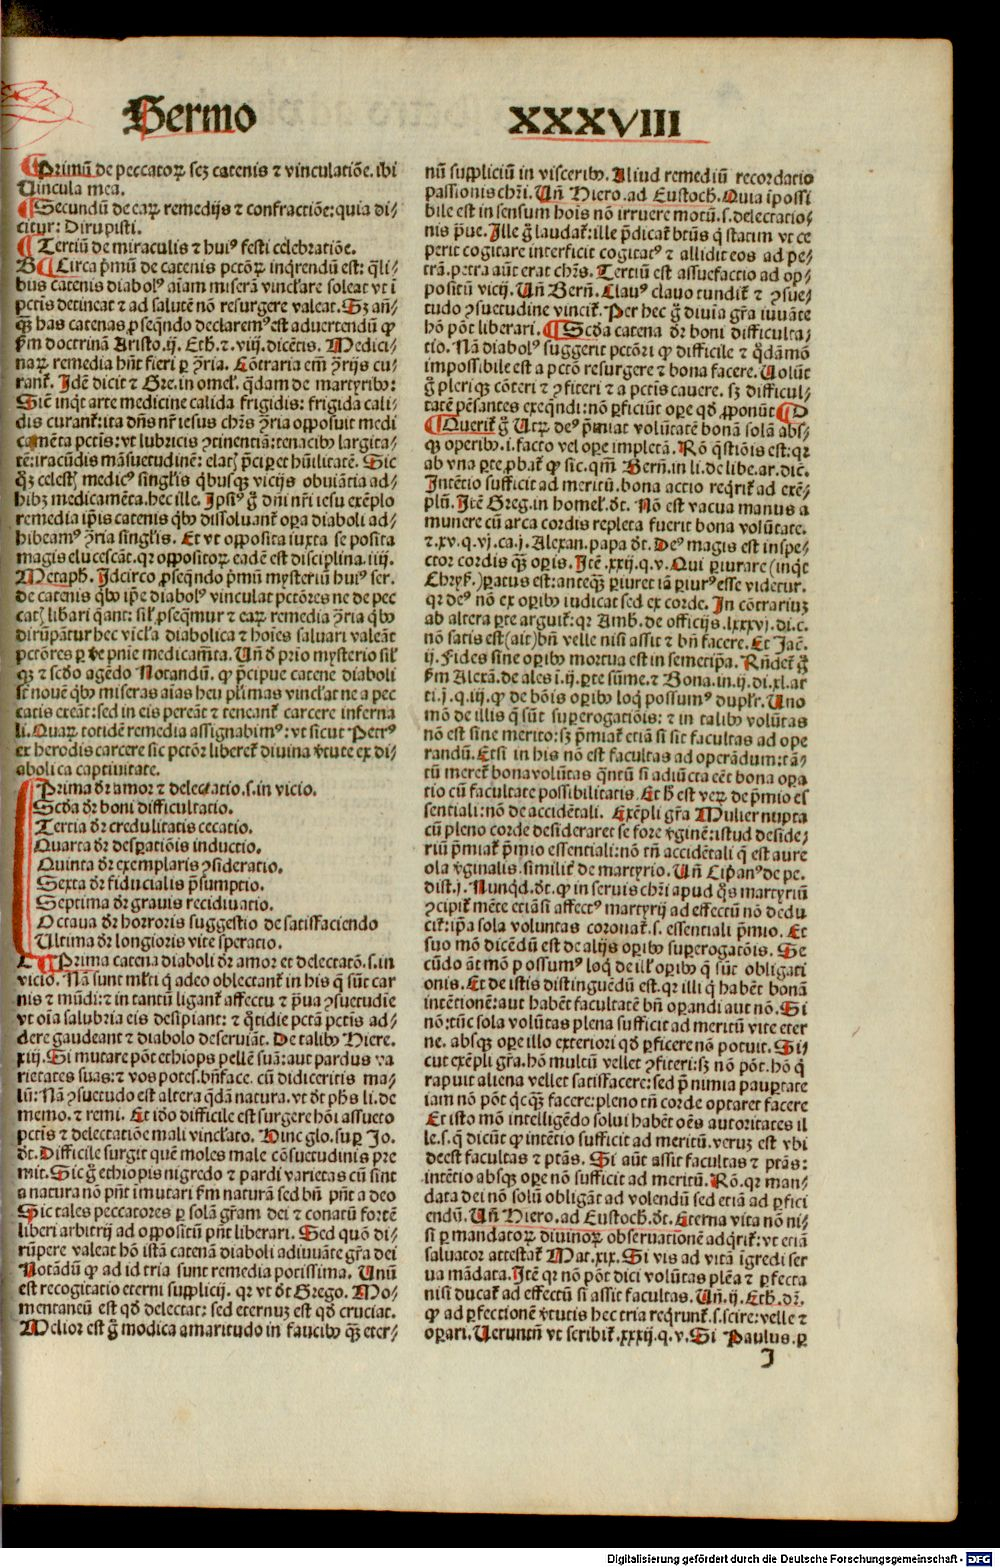 Sermo
XXXVIII
Primū de peccatoꝝ scꝫ catenis ⁊ vinculatiōe. ibi
Uincula mea.
Secundū de eaꝝ remedijs ⁊ confractiōe: quia di⸗
citur: Dirupisti.
Tertiū de miraculis ⁊ huiꝰ festi celebratiōe.
B Circa pͥmū de catenis pctōꝝ inqͥrendū est: qͣli⸗
bus catenis diabolꝰ aīam miserā vinclare soleat vt ī
pctīs detineat ⁊ ad salutē nō resurgere valeat. Sꝫ añ⸗
qͣꝫ has catenas ꝓseqn̄do declaremꝰ est aduertendū ꝙ
fm doctrinā Aristo. ij. Eth. ⁊. viij. dicētis. Medici⸗
naꝝ remedia hn̄t fieri ꝑ ꝯͬria. Cōtraria em̄ ꝯͬrijs cu⸗
ranť. Idē dicit ⁊ Gre. in omeľ. qͣdam de martyribꝰ:
Sicē inqͭ arte medicine calida frigidis: frigida cali⸗
dis curanť: ita dn̄s nr̄ iesus chr̄s ꝯͬria opposuit medi
camēta pctīs: vt lubricis ꝯtinentiā: tenacibꝰ largita⸗
tē: iracūdis māsuetudinē: elatꝭ pͥciꝑet hūilitatē. Sic
qͦꝫ celestꝭ medicꝰ singľis qͥbusqꝫ vicijs obuiātia ad⸗
hibꝫ medicamēta. hec ille. Ipsiꝰ g̊ dn̄i nr̄i iesu exēplo
remedia ip̄is catenis qͥbꝰ dissoluanť oꝑa diaboli ad⸗
hibeamꝰ ꝯͬria singľis. Et vt opposita iuxta se posita
magis elucescāt. qꝛ oppositoꝝ eadē est disciplina. iiij.
Metaph. Idcirco ꝓseqn̄do pͥmū mysteriū huiꝰ ser.
de catenis qͥbꝰ ip̄e diabolꝰ vinculat pctōres ne de pec
catꝭ libari qͣant: siľ ꝓseqͣmur ⁊ eaꝝ remedia ꝯͬria qͥbꝰ
dirūpātur hec vicľa diabolica ⁊ hoīes saluari valeāt
pctōres ꝑ ꝟe pn̄ie medicam̄ta. Un̄ đ pͥo mysterio siľ
qͣꝫ ⁊ scđo agēdo Notandū. ꝙ pͥcipue catene diaboli
st̄ nouē qͥbꝰ miseras aīas heu pľimas vinclat ne a pec
catis exeāt: sed in eis pereāt ⁊ teneanť carcere inferna
li. Quaꝝ totidē remedia assignabimꝰ: vt sicut Petrꝰ
ex herodis carcere sic pctōr libereť diuina ꝟtute ex di⸗
abolica captiuitate.
Prima dr̄ amor ⁊ delectatio. s. in vicio.
Scđa dr̄ boni difficultatio.
Tertia dr̄ credulitatis cecatio.
Quarta dr̄ despatiōis inductio.
Quinta dr̄ exemplaris ꝯsideratio.
Sexta dr̄ fiducialis pͥsumptio.
Septima dr̄ grauis recidiuatio.
Octaua dr̄ horroris suggestio de satisfaciendo
Ultima dr̄ longioris vite speratio.
C Prima catena diaboli dr̄ amor et delectatō. s. in
vicio. Nā sunt mľti qͥ adeo oblectanť in his q̄ sūt car
nis ⁊ mūdi: ⁊ in tantū liganť affectu ⁊ pͣua ꝯsuetudīe
vt oīa salubria eis desipiant: ⁊ qͦtidie pctā pctīs ad⸗
dere gaudeant ⁊ diabolo deseruiāt. De talibꝰ Hiere.
xiij. Si mutare pōt ethiops pellē suā: aut pardus va
rietates suas: ⁊ vos potes. bn̄face. cū didiceritis ma⸗
lū: Nā ꝯsuetudo est altera qͣdā natura. vt dt̄ phs li. de
memo. ⁊ remi. Et iđo difficile est surgere hōi assueto
pctīs ⁊ delectatiōe mali vincľato. Hinc glo. suꝑ Jo.
dt̄. Difficile surgit quē moles male cōsuetudinis pre
mit. Sic g̊ ethiopis nigredo ⁊ pardi varietas cū sint
a natura nō pn̄t īmutari fm naturā sed bn̄ pn̄t a deo
Sic tales peccatores ꝑ solā gr̄am dei ⁊ conatū fortē
liberi arbitrij ad oppositū pn̄t liberari. Sed quō di⸗
rūpere valeat hō istā catenā diaboli adiuuāte gr̄a dei
Notādū ꝙ ad id tria sunt remedia potissima. Unū
est recogitatio eterni supplicij. qꝛ vt dt̄ Grego. Mo⸗
mentaneū est qđ delectat: sed eternuꝫ est qđ cruciat.
Melior est g̊ modica amaritudo in faucibꝰ qͣꝫ eter⸗
nū suppliciū in visceribꝰ. Aliud remediū recordatio
passionis chr̄i. Un̄ Hiero. ad Eustoch. Quia īpossi
bile est in sensum hoīs nō irruere motū. s. delectatio⸗
nis pͣue. Ille g̊ laudať: ille pͥdicať btūs qͥ statim vt ce
perit cogitare interficit cogitatꝰ ⁊ allidit eos ad pe⸗
trā. petra aūt erat chr̄s. Tertiū est assuefactio ad op⸗
positū vicij. Un̄ Bern̄. Clauꝰ clauo tundiť ⁊ ꝯsue⸗
tudo ꝯsuetudine vinciť. Per hec g̊ diuīa gr̄a iuuāte
hō pōt liberari. Scđa catena dr̄ boni difficulta⸗
tio. Nā diabolꝰ suggerit pctōri ꝙ difficile ⁊ qͦdāmō
impossibile est a pctō resurgere ⁊ bona facere. Uolūt
g̊ pleriqꝫ cōteri ⁊ ꝯfiteri ⁊ a pctīs cauere. sꝫ difficul⸗
tatē pēsantes exeqn̄di: nō ꝑficiūt oꝑe qđ ꝓponūt D
Queriť g̊ Utꝝ deꝰ pͥmiat voluntatē bonā solā abs⸗
qꝫ oꝑibꝰ. i. facto vel oꝑe impletā. Rō qͣstiōis est: qꝛ
ab vna ꝑte ꝓbať ꝙ sic. qm̄ Bern̄. in li. de libe. ar. diē.
Intētio sufficit ad meritū. bona actio reqͥriť ad exē⸗
plū. Itē Greg. in homeľ. dt̄. Nō est vacua manus a
munere cū arca cordis repleta fuerit bona volūtate.
⁊. xv. q. vj. ca. j. Alexan. papa dt̄. Deꝰ magis est inspe⸗
ctor cordis qͣꝫ oꝑis. Itē. xxij. q. v. Qui ꝑiurare (inqͭ
Chryſ.) ꝑatus est: anteqͣꝫ ꝑiuret iā ꝑiurꝰ esse videtur.
qꝛ deꝰ nō ex oꝑibꝰ iudicat sed ex corde. In cōtrariuꝫ
ab altera ꝑte arguiť: qꝛ Amb. de officijs. lxxxvj. di. c.
nō satis est (ait) bn̄ velle nisi assit ⁊ bn̄ facere. Et Jac̄.
ij. Fides sine oꝑibꝰ mortua est in semetip̄a. Rn̄deť g̊
fm Alexā. de ales ī. ij. ꝑte sūme. ⁊ Bona. in. ij. di. xl. ar
ti. j. q. iij. ꝙ de bōis oꝑibꝰ loqͥ possumꝰ dupľr. Uno
mō de illis q̄ sūt suꝑerogatiōis: ⁊ in talibꝰ volūtas
nō est sine merito: sꝫ pͥmiať etiā si sit facultas ad ope
randū. Etsi in his nō est facultas ad operādum: tā⸗
tū mereť bona volūtas qͣntū si adiūcta eēt bona oꝑa
tio cū facultate possibilitatis. Et h̄ est veꝝ de pͥmio es
sentiali: nō de accidētali. Exēpli gr̄a Mulier nupta
cū pleno corde desideraret se fore ꝟginē: istud deside⸗
riū pͥmiať pͥmio essentiali: nō tn̄ accidētali q̄ est aure
ola ꝟginalis. similiť de martyrio. Un̄ Cip̄anꝰ de pe.
dist. j. Nunqͥd. dt̄. ꝙ in seruis chr̄i apud qͦs martyriū
ꝯcipiť mēte etiāsi affectꝰ martyrij ad effectū nō dedu
ciť: ip̄a sola voluntas coronať. s. essentiali pͥmio. Et
suo mō dicēdū est de alijs oꝑibꝰ suꝑerogatōis. Se
cūdo āt mō possumꝰ loqͥ de ilľ oꝑibꝰ q̄ sūt obligati
onis. Et de istis distinguēdū est. qꝛ illi qͥ habēt bonā
intētionē: aut habēt facultatē bn̄ oꝑandi aut nō. Si
nō: tūc sola volūtas plena sufficit ad meritū vite eter
ne. absqꝫ oꝑe illo exteriori qđ ꝑficere nō potuit. Si⸗
cut exēpli gr̄a. hō multū vellet ꝯfiteri: sꝫ nō pōt. hō qͥ
rapuit aliena vellet satisfacere: sed pͥ nimia pauꝑtate
iam nō pōt qͥcqͣꝫ facere: pleno tn̄ corde optaret facere
Et isto mō intelligēdo solui habēt oēs autoritates il
le. s. q̄ dicūt ꝙ intētio sufficit ad meritū. veruꝫ est vbi
deest facultas ⁊ ptās. Si aūt assit facultas ⁊ ptās:
intētio absqꝫ oꝑe nō sufficit ad meritū. Rō. qꝛ man⸗
data dei nō solū obligāt ad volendū sed etiā ad ꝑfici
endū. Un̄ Hiero. ad Eustoch. dt̄. Eterna vita nō ni⸗
si ꝑ mandatoꝝ diuinoꝝ obseruationē adqͥriť: vt etiā
saluator attestať Mat. xix. Si vis ad vitā īgredi ser
ua mādata. Itē qꝛ nō pōt dici volūtas plēa ⁊ ꝑfecta
nisi ducať ad effectū si assit facultas. Un̄. ij. Eth. dr̄.
ꝙ ad ꝑfectionē ꝟtutis hec tria reqͥrunť. s. scire: velle ⁊
oꝑari. Ueruntn̄ vt scribiť. xxxij. q. v. Si Paulus. ꝑ
J
Digitalisierung gefördert durch die Deutsche Forschungsgemeinschaft - DFG